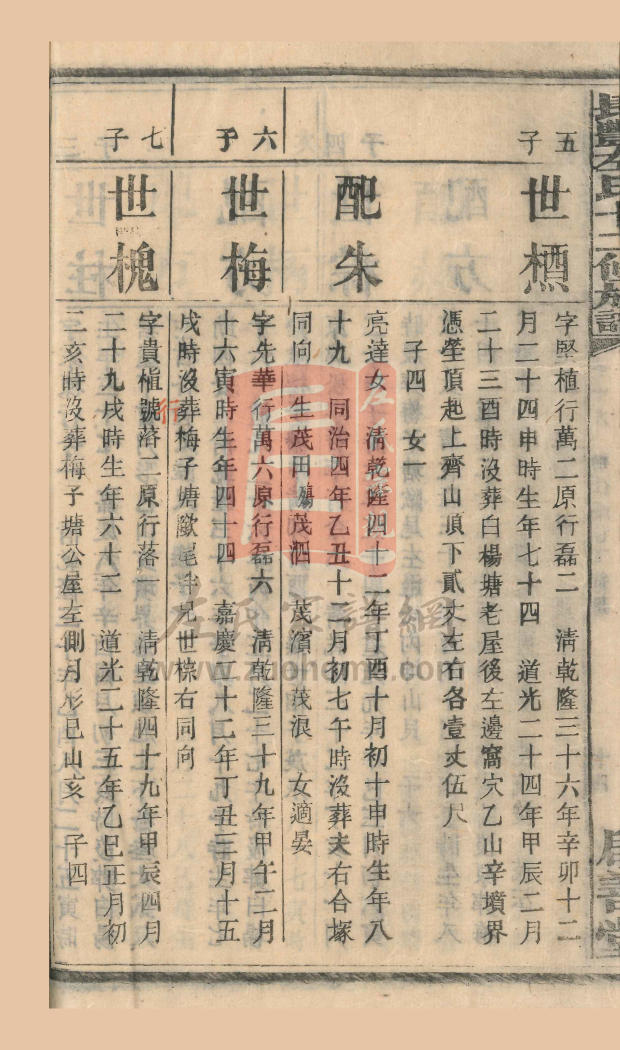 五子
世槱
字堅植行萬二原行磊二　清乾隆三十六年辛卯十二
月二十四申時生年七十四　道光二十四年甲辰二月
二十三酉時沒葬白楊塘老屋後左邊窩穴乙山辛墳界
憑塋頂起上齊山頂下貳丈左右各壹丈伍尺
子四　女一
配朱
亮達女　清乾隆四十二年丁酉十月初十申時生年八
十九　同治四年乙丑十二月初七午時沒葬夫右合塚
同向　生茂田　茂泗　茂濱　茂浪　女適晏
六子
世梅
字先華行萬六原行磊六　清乾隆三十九年甲午二月
十六寅時生年四十四　嘉慶二十二年丁丑三月十五
戌時沒葬梅子塘　尾伴兄世　右同向
七子
世槐
字貴植號落二原行落一　清乾隆四十九年甲辰四月
二十九戌時生年六十二　道光二十五年乙巳正月初
二亥時沒葬梅子塘公屋左側月形巳山亥　子四
行
左氏家譜網
www.zuohome.com